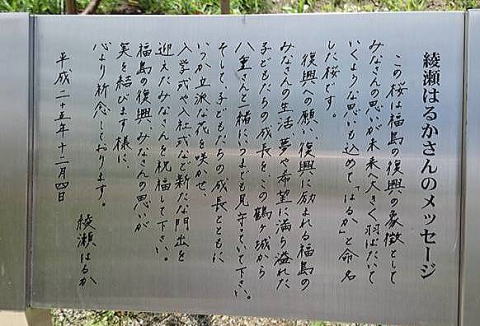 綾瀬はるかさんのメッセージ
この桜は福島の復興の象徴として
みなさんの思いが未来へ大きく羽ばたいて
いくような思いも込めて「はるか」と命名
した桜です。
復興の願い、復興に励まれる福島の
みなさんの生活、夢や希望に満ち溢れた
子どもたちの成長をこの鶴ヶ城から
八重さんと一緒にいつまでも見守っていて下さい。
そして、子どもたちの成長とともに
いつか立派な花を咲かせ、
入学式や入社式など新たな門出を
迎えたみなさんを祝福して下さい。
福島の復興、みなさんの思いが
実を結びます様に
心より祈念しております。
平成二十五年十二月四日
綾瀬はるか